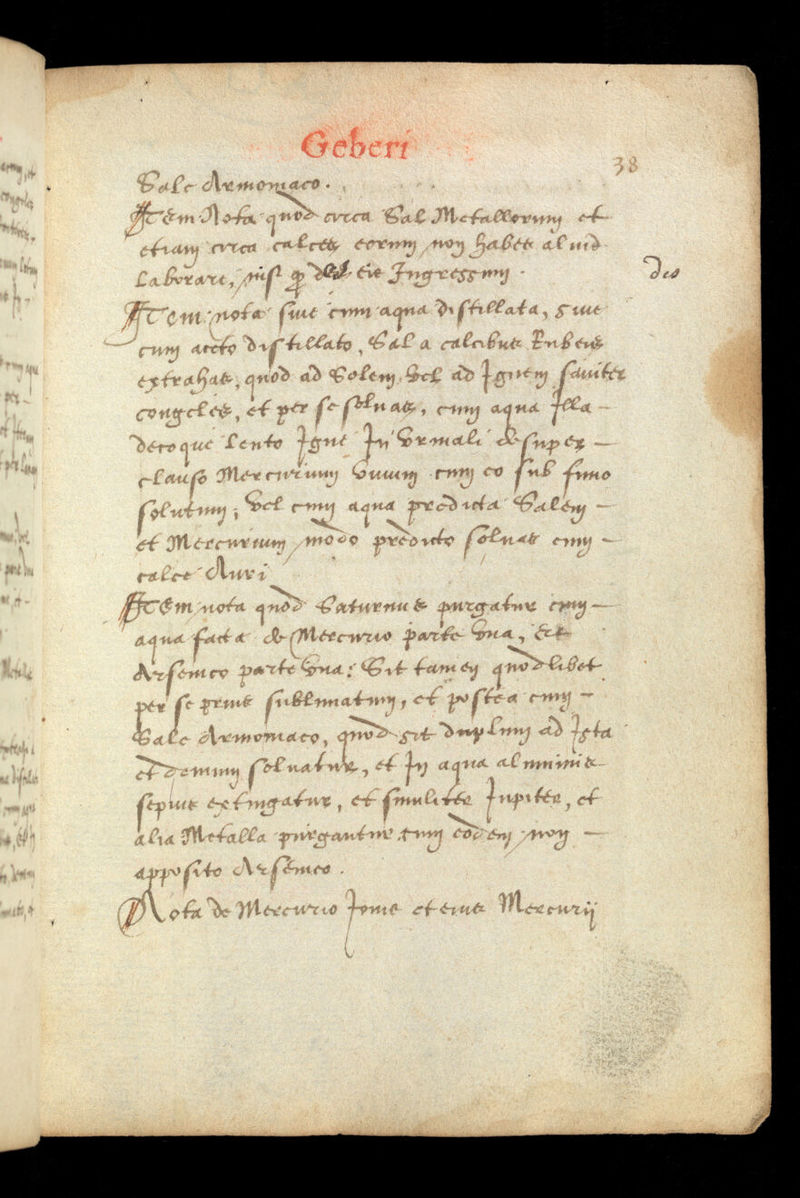 Geberi
38
Sale Armoniaco.
ITem Nota quod circa Sal Metallorum et
etiam circa calces eorum non habes aliud
Laborare, nisi eis Ingressum.
des
ITem nota sive cum aqua distillata, sive
cum aceto distillato, Sal a calcibus Rubeis
extrahas, quod ad Solem vel ad Ignem suaviter
congeles, et per se solvas, cum aqua Illa –
decoque lento Igne In Urinali desuper –
clauso Mercurium vivum cum eo sub fimo
solutum; vel cum aqua predicta Salem –
et Mercurium modo predicto solvas cum –
calce Auri
ITem nota quod Saturnus purgatur cum –
aqua facta de Mercurio parte una, et
Arsenico parte una: Sit tamen quodlibet
per se prius sublimatum, et postea cum –
Sale Armoniaco, quod sit duplum ad Ista
et demum solvatur, et In aqua aluminis
sepius extingatur, et similiter Jupiter, et
alia Metalla purgantur cum eodem non –
apposito Arsenico.
Nota de Mercurio Jovis et eius Mercurij